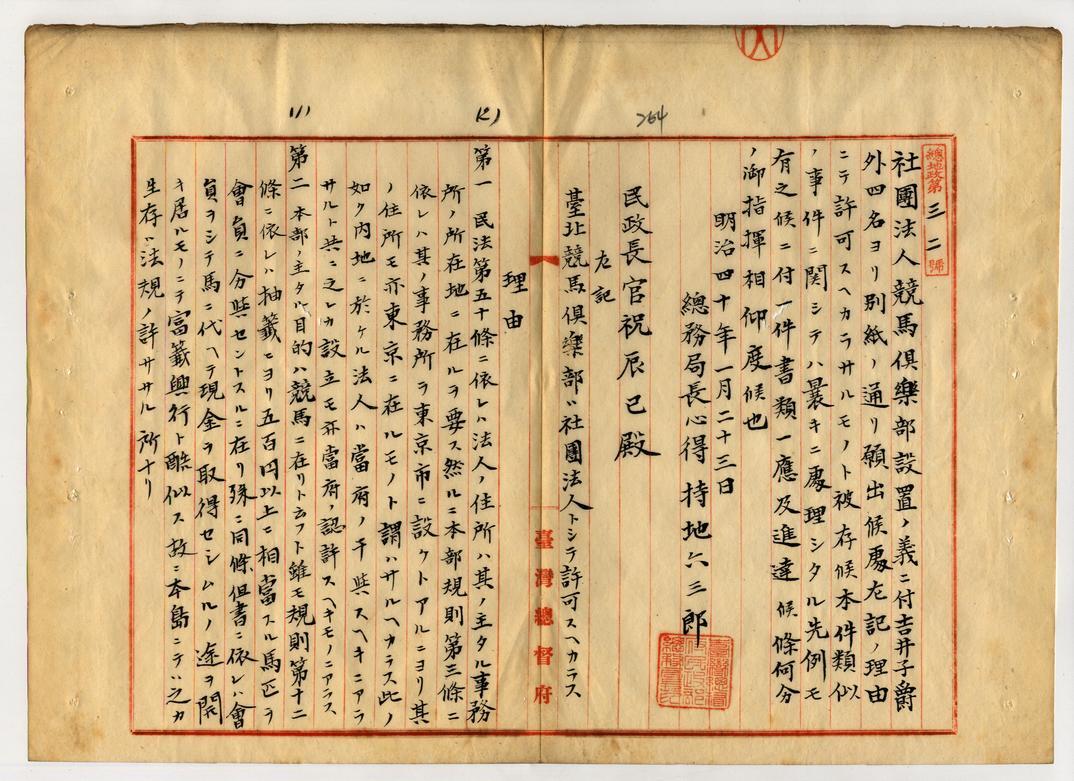 264
(2)
(1)
總地政第三二號
社團法人競馬倶樂部設置ノ義ニ付吉井子爵
外四名ヨリ別紙ノ通リ願出候處左記ノ理由
ニテ許可スヘカラサルモノト被存候本件類似
ノ事件ニ関シテハ曩キニ處理シタル先例モ
有之候ニ付一件書類一應及進達候條何分
ノ御指揮相仰度候也
明治四十年一月二十三日
總務局長心得 持地六三郎
民政長官祝辰巳殿
左記
臺北競馬倶樂部ハ社團法人トシテ許可スヘカラス
臺灣總督府
理由
第一 民法第五十條ニ依レハ法人ノ住所ハ其ノ主タル事務
所ノ所在地ニ在ルヲ要ス然ルニ本部規則第三條ニ
依レハ其ノ事務所ヲ東京市ニ設クトアルニヨリ其
ノ住所モ亦東京ニ在ルモノト謂ハサルヘカラス此ノ
如ク内地ニ於ケル法人ハ當府ノ干與スヘキニアラ
サルト共ニ之レカ設立モ亦當府ノ認許スヘキモノニアラス
第二 本部ノ主タル目的ハ競馬ニ在リト云フト雖モ規則第十二
條ニ依レハ抽籤ニヨリ五百円以上ニ相當スル馬匹ヲ
會員ニ分與セントスルニ在リ殊ニ同條但書ニ依レハ會
員ヲシテ馬ニ代ヘテ現金ヲ取得セシムルノ途ヲ開
キ居ルモノニテ富籤興行ト酷似ス故ニ本島ニテハ之カ
生存ハ法規ノ許ササル所ナリ